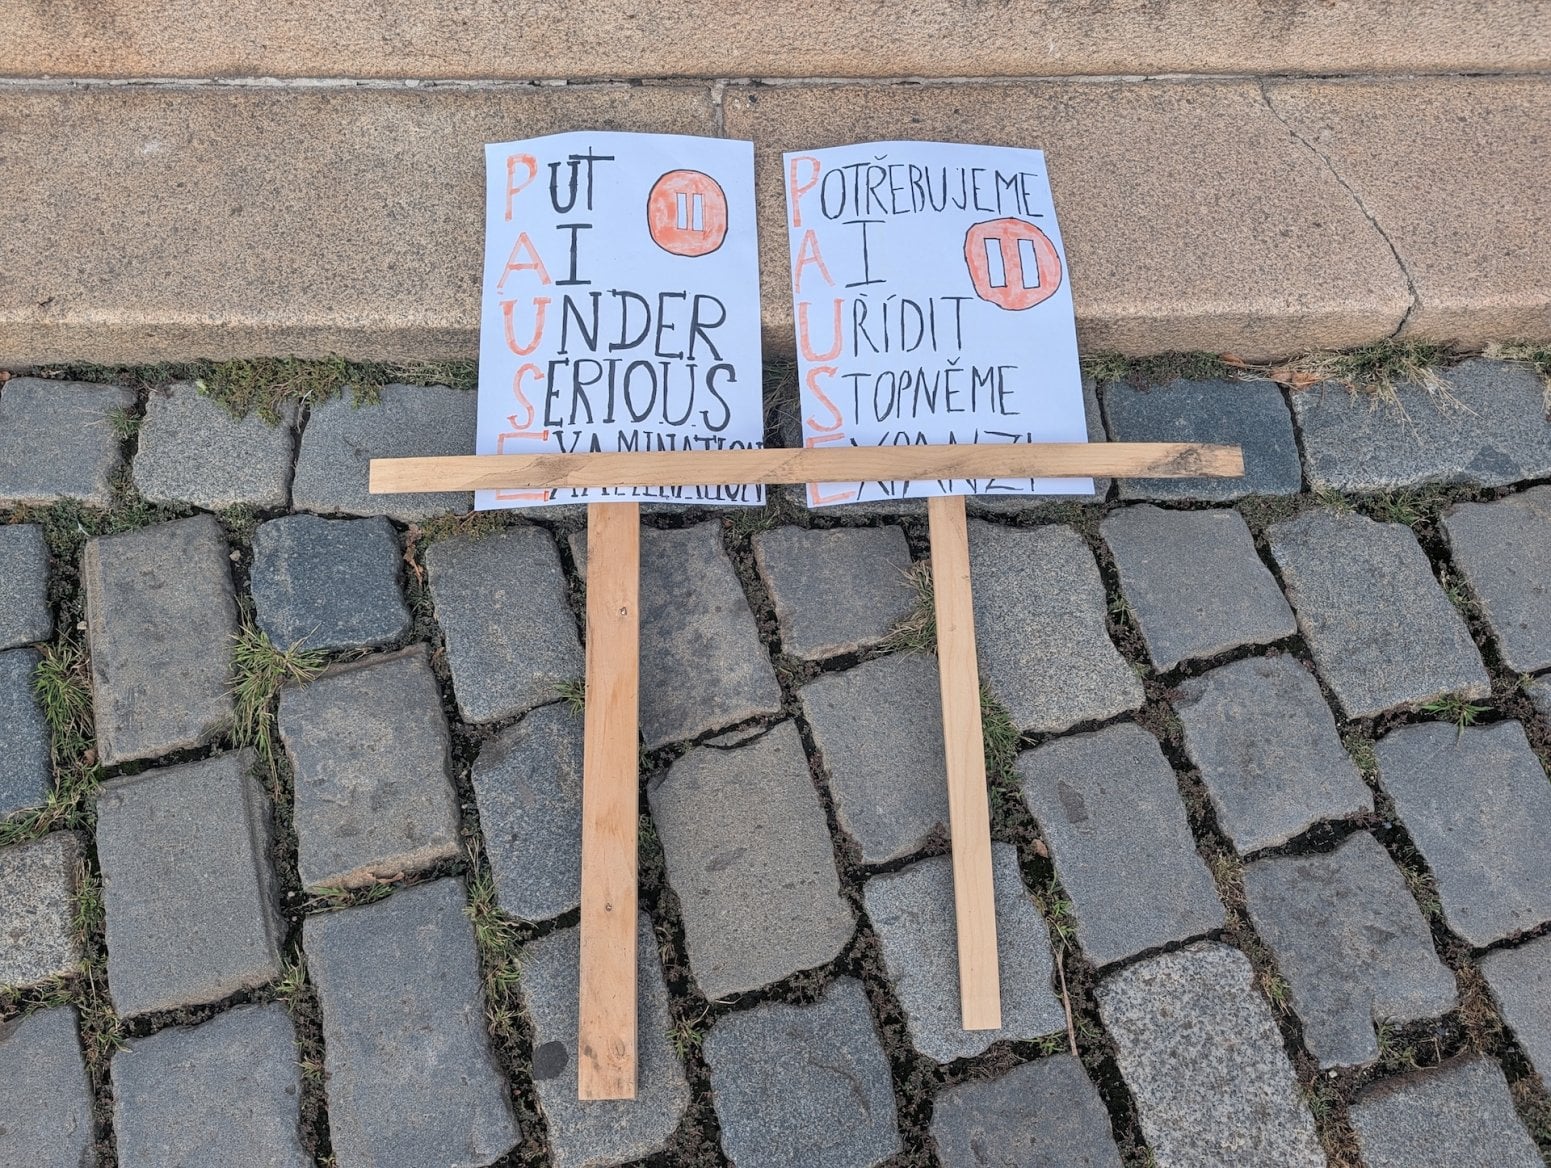 PUT
AI
UNDER
SERIOUS
EXAMINATION
POTŘEBUJEME
AI
UŘÍDIT
STOPNĚME
EXPANZI